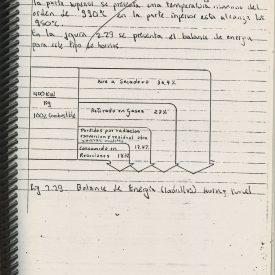 la parte superior se presenta una temperatura máxima del
orden de 930°C en la parte inferior esta alcanza los
950°C.
En la figura 2.29 se presenta el balance de energía
para este tipo de hornos.
Aire a Secadero 34,9%
Retirado en Gases 27%
100% Combustible
Perdidas por radiacion
conveccion y residual
17,4%
Consumido en
Reacciones
Fig 2.29 Balance de Energía (Ladrillos) horno tunel